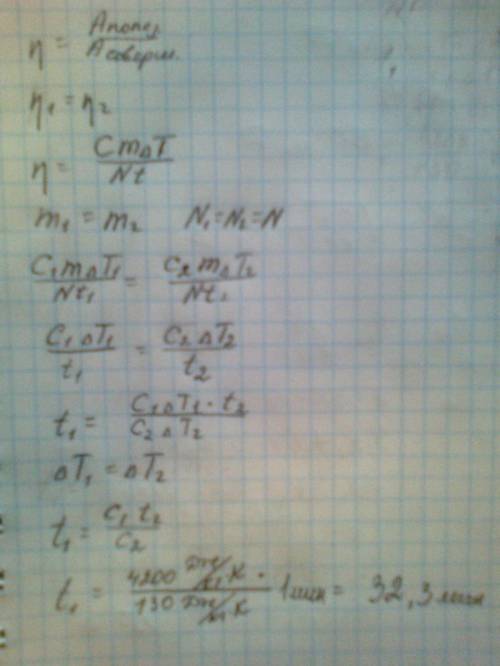 η = Аполез / Асоверш.
η₁ = η₂
η = CmΔT / Nt
m₁ = m₂ N₁=N₂=N
C₁mΔT₁ / Nt₁ = C₂mΔT₂ / Nt₂
C₁ΔT₁ / t₁ = C₂ΔT₂ / t₂
t₁ = C₁ΔT₁·t₂ / C₂ΔT₂
ΔT₁ = ΔT₂
t₁ = C₁t₂ / C₂
t₁ = 4200 Дж/кг К · / 130 Дж/кг К 1мин = 32,3мин